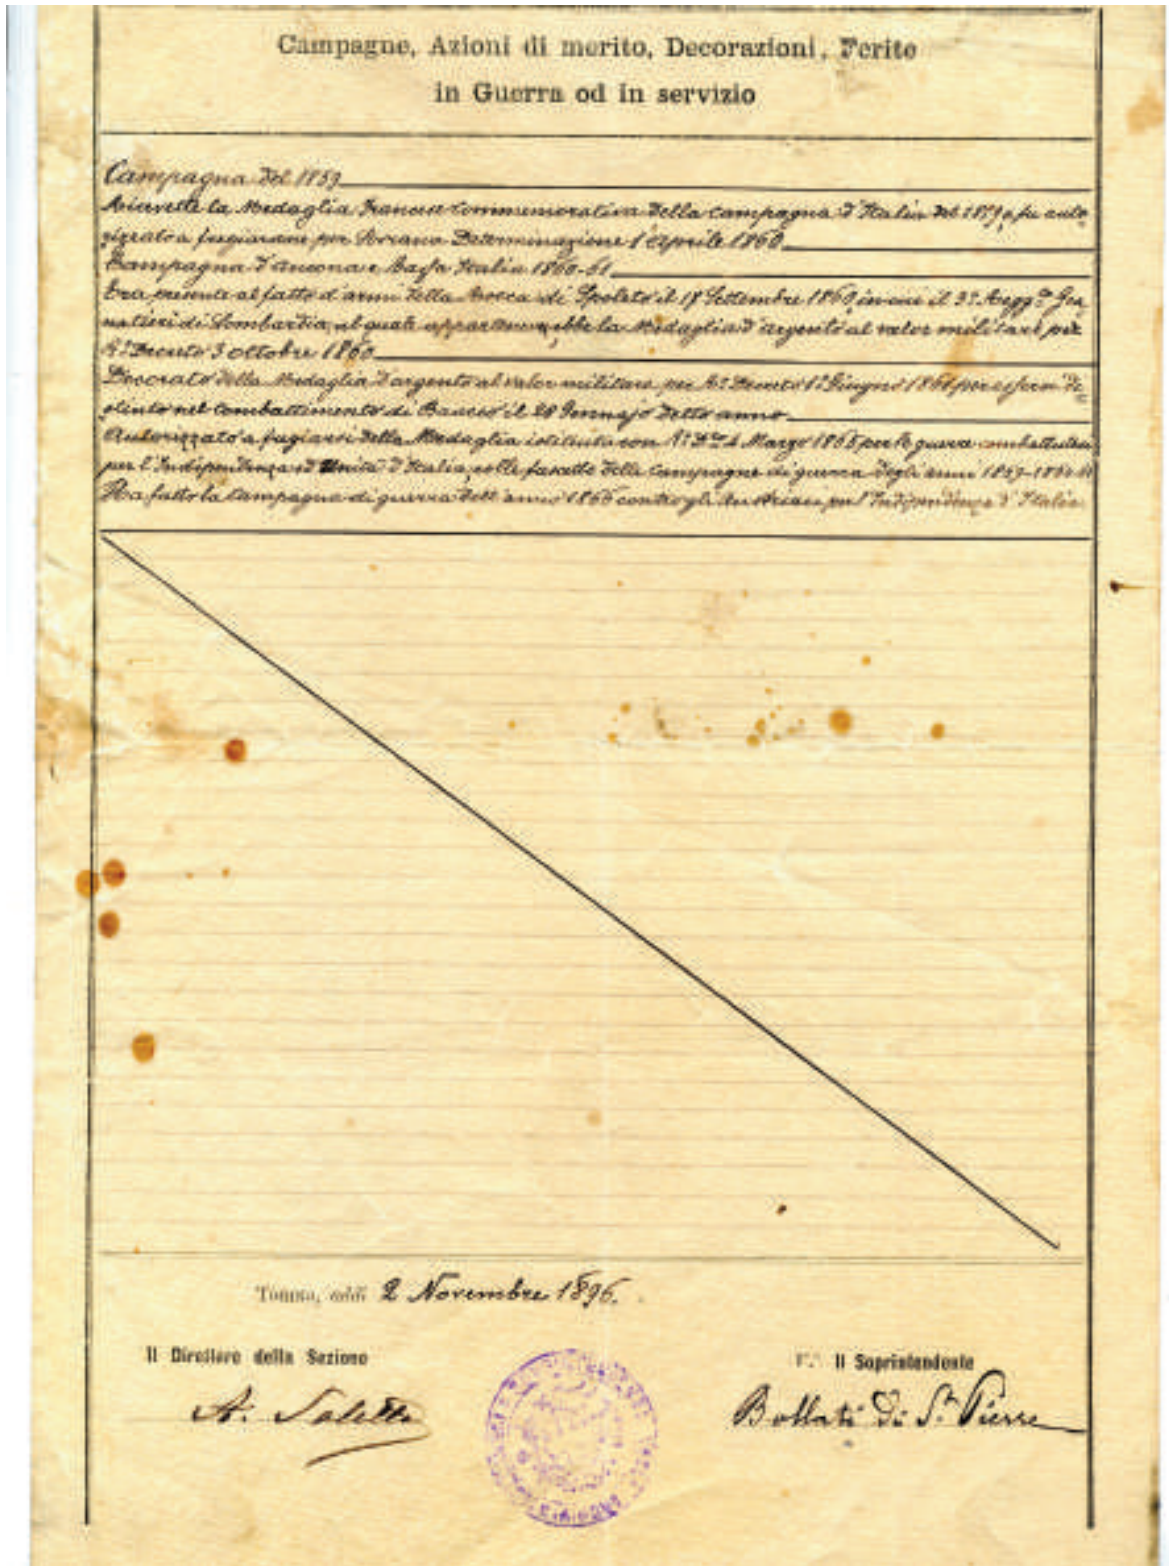 Campagne, Azioni di merito, Decorazioni, Ferite
in Guerra od in servizio
Campagna del 1859
Ricevette la Medaglia Francese Commemorativa della campagna d'Italia del 1859, e fu auto-
rizzato a fregiarsene per Sovrana Determinazione 1° Aprile 1860
Campagna d'Ancona e Bassa Italia 1860-61
Era presente al fatto d'armi della Rocca di Spoleto il 17 Settembre 1860, in cui il 3° Regg.to Gra-
natieri di Lombardia, al quale apparteneva, ebbe la Medaglia d'argento al valor militare per
R.° Decreto 3 ottobre 1860
Decorato della Medaglia d'argento al valor militare, per R.° Decreto 1° Giugno 1861 per essersi di-
stinto nel combattimento di Bauco il 28 Gennajo detto anno
Autorizzato a fregiarsi della Medaglia istituita con R.° D.to 4 Marzo 1865 per le guerre combattutesi
per l'Indipendenza ed Unità d'Italia, colle fascette delle Campagne di guerra degli anni 1859-1860-61
Ha fatto la Campagna di guerra dell'anno 1866 contro gli Austriaci per l'Indipendenza d'Italia
Torino, addì 2 Novembre 1896.
Il Direttore della Sezione
Il Soprintendente
A. Saletta
Bollati di S.t Pierre